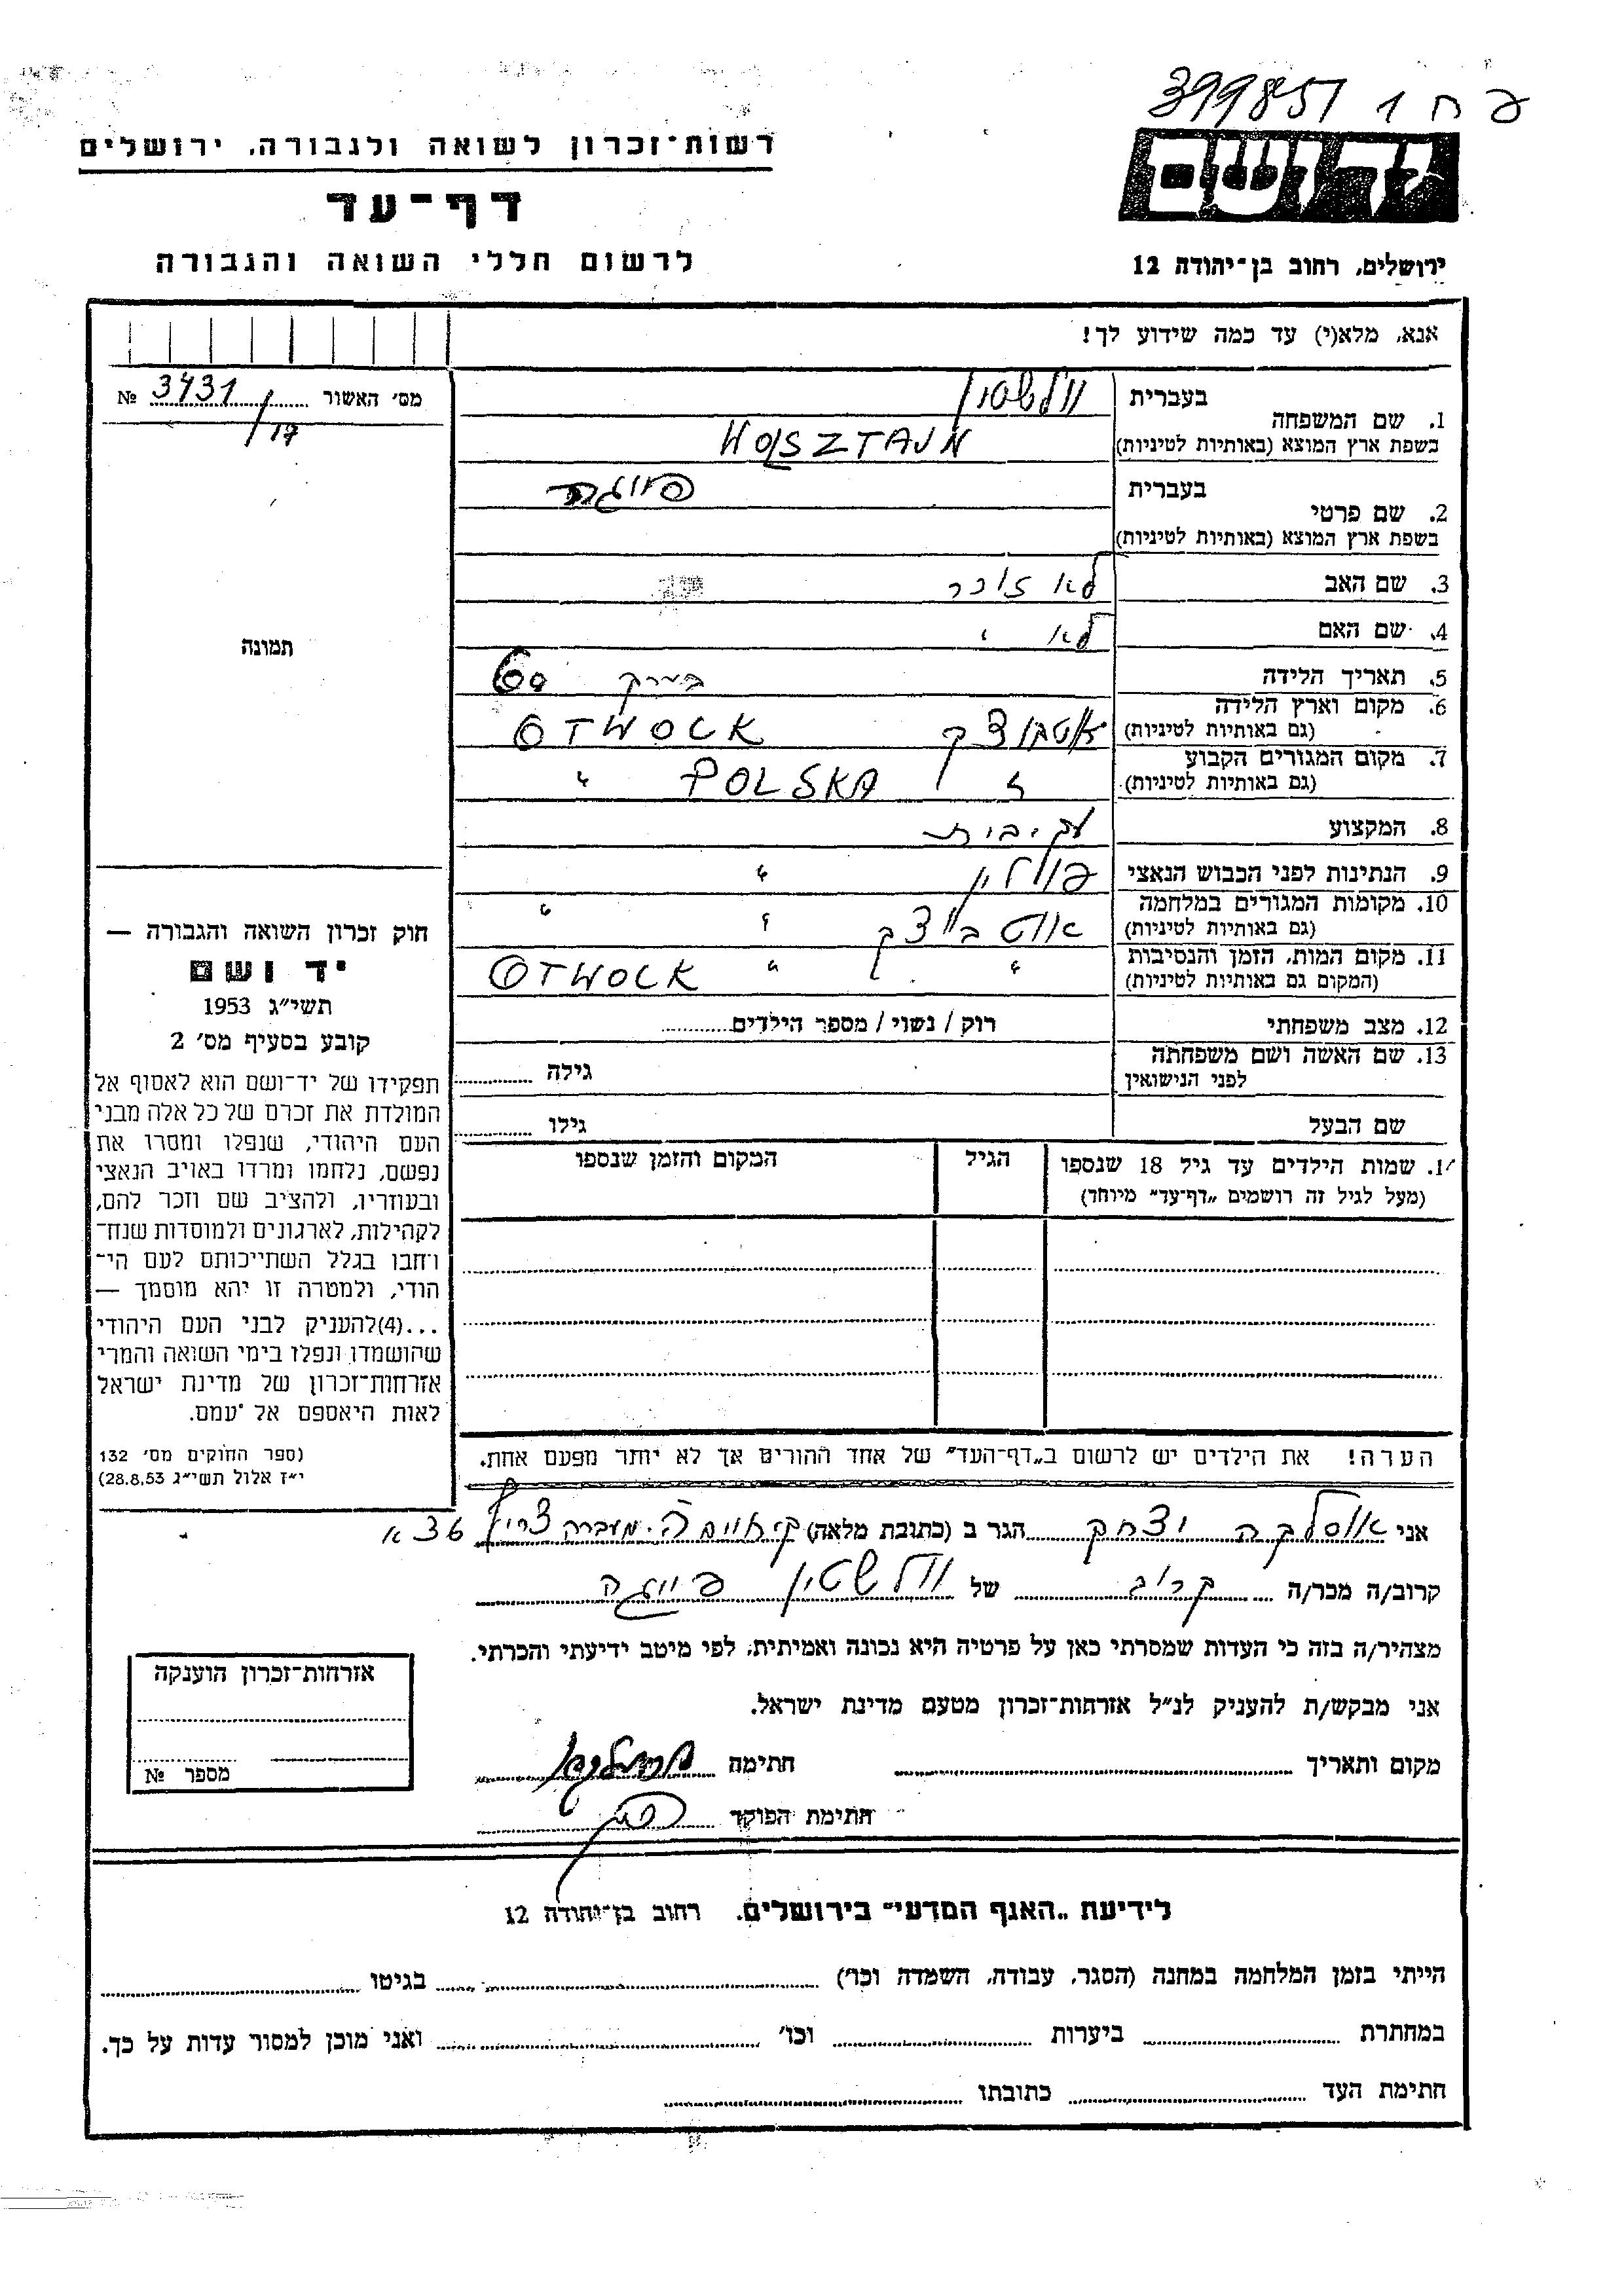 פ ח 1 399851
רשות־זכרון לשואה ולגבורה, ירושלים
דף־עד
לרשום חללי השואה והגבורה
יד ושם
ירושלים, רחוב בן־יהודה 12
אנא, מלא(י) עד כמה שידוע לך!
מס׳ האשור 3431/17 №
תמונה
1. שם המשפחה בעברית וולשטיין
בשפת ארץ המוצא (באותיות לטיניות) WOLSZTAJN
2. שם פרטי בעברית פייגה
בשפת ארץ המוצא (באותיות לטיניות)
3. שם האב לא זוכר
4. שם האם לא "
5. תאריך הלידה בערך 60
6. מקום וארץ הלידה (גם באותיות לטיניות) אטבוצק OTWOCK
7. מקום המגורים הקבוע (גם באותיות לטיניות) " POLSKA "
8. המקצוע עק. בית
9. הנתינות לפני הכבוש הנאצי פולין "
10. מקומות המגורים במלחמה (גם באותיות לטיניות) אוטבוצק " "
11. מקום המות, הזמן והנסיבות (המקום גם באותיות לטיניות) " " OTWOCK
12. מצב משפחתי רוק / נשוי / מספר הילדים
13. שם האשה ושם משפחתה לפני הנישואין גילה
שם הבעל גילו
14. שמות הילדים עד גיל 18 שנספו הגיל המקום והזמן שנספו
(מעל לגיל זה רושמים „דף־עד״ מיוחד)
הערה! את הילדים יש לרשום ב„דף־העד״ של אחד ההורים אך לא יותר מפעם אחת.
חוק זכרון השואה והגבורה —
יד ושם
תשי״ג 1953
קובע בסעיף מס׳ 2
תפקידו של יד־ושם הוא לאסוף אל
המולדת את זכרם של כל אלה מבני
העם היהודי, שנפלו ומסרו את
נפשם, נלחמו ומרדו באויב הנאצי
ובעוזריו, ולהציב שם וזכר להם,
לקהילות, לארגונים ולמוסדות שנח־
רבו בגלל השתייכותם לעם הי־
הודי, ולמטרה זו יהא מוסמך —
...(4)להעניק לבני העם היהודי
שהושמדו ונפלו בימי השואה והמרי
אזרחות־זכרון של מדינת ישראל
לאות היאספם אל עמם.
(ספר החוקים מס׳ 132
י״ז אלול תשי״ג 28.8.53)
אני אוסלקה יצחק הגר ב (כתובת מלאה) מעברה צריף 36 א
קרוב/ה מכר/ה קרוב של וולשטיין פייגה
מצהיר/ה בזה כי העדות שמסרתי כאן על פרטיה היא נכונה ואמיתית, לפי מיטב ידיעתי והכרתי.
אני מבקש/ת להעניק לנ״ל אזרחות־זכרון מטעם מדינת ישראל.
מקום ותאריך חתימה
חתימת הפוקד
אזרחות־זכרון הוענקה
מספר №
לידיעת „האגף המדעי״ בירושלים. רחוב בן־יהודה 12
הייתי בזמן המלחמה במחנה (הסגר, עבודה, השמדה וכו׳) בגיטו
במחתרת ביערות וכו׳ ואני מוכן למסור עדות על כך.
חתימת העד כתובתו